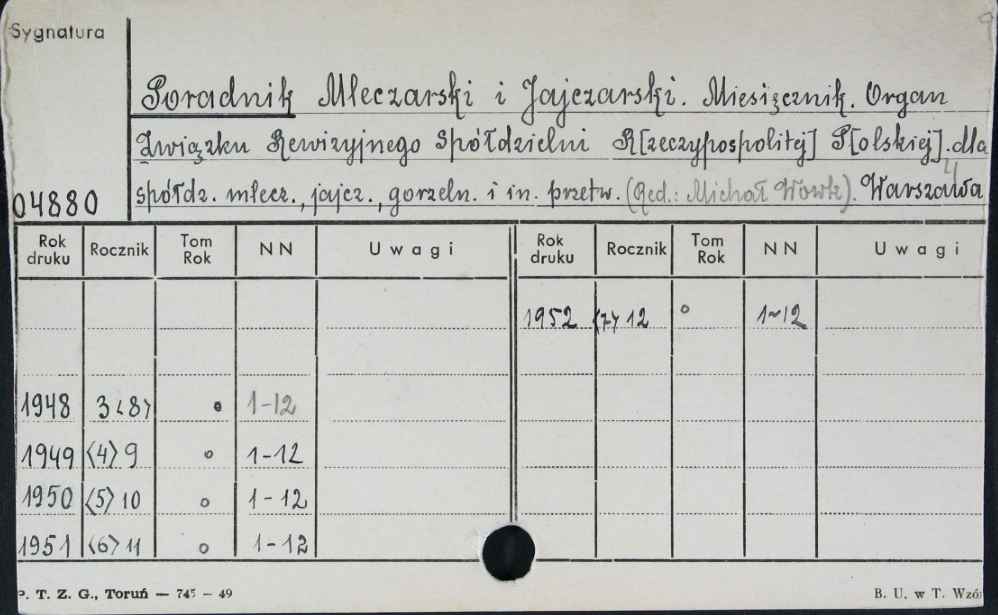 Sygnatura
Poradnik Mleczarski i Jajczarski. Miesięcznik. Organ
Związku Rewizyjnego Spółdzielni R[zeczypospolitej] P[olskiej] dla
04880 spółdz. mlecz., jajcz., gorzeln. i in. przetw. (Red.: Michał Wowk). Warszawa
Rok druku Rocznik Tom Rok NN Uwagi Rok druku Rocznik Tom Rok NN Uwagi
1952 <7> 12 o 1-12
1948 3 <8> o 1-12
1949 <4> 9 o 1-12
1950 <5> 10 o 1-12
1951 <6> 11 o 1-12
P. T. Z. G., Toruń — 745 - 49 B. U. w T. Wzór